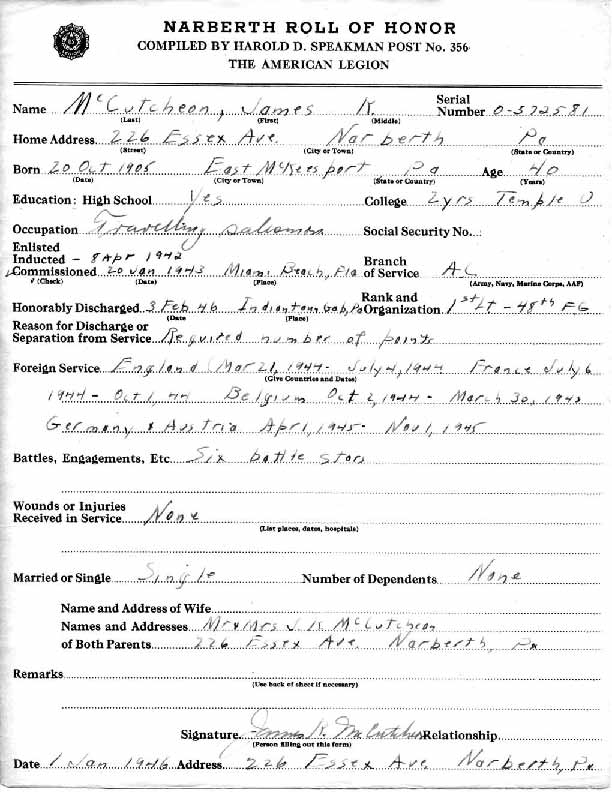 NARBERTH ROLL OF HONOR
COMPILED BY HAROLD D. SPEAKMAN POST No. 356
THE AMERICAN LEGION
Name McCutcheon, James K. Serial Number 0-572581
(Last) (First) (Middle)
Home Address 226 Essex Ave. Narberth Pa
(Street) (City or Town) (State or Country)
Born 20 Oct 1905 East McKeesport Pa Age 40
(Date) (City or Town) (State or Country) (Years)
Education: High School Yes College 2yrs Temple U
Occupation Travelling salesman Social Security No.
Enlisted
Inducted - 8 Apr 1942 Branch
Commissioned 20 Jan 1943 Miami Beach, Fla of Service AC
(Check) (Date) (Place) (Army, Navy, Marine Corps, AAF)
Rank and
Honorably Discharged 3 Feb 46 Indiantown Gap, Pa Organization 1st Lt - 48th FG
(Date (Place)
Reason for Discharge or
Separation from Service Required number of points
Foreign Service England (Mar 21, 1944 - July 4, 1944 France July 6
(Give Countries and Dates)
1944 - Oct 1, 44 Belgium Oct 2, 1944 - March 30, 1945
Germany & Austria Apr 1, 1945 - Nov 1, 1945
Battles, Engagements, Etc. Six battle stars
Wounds or Injuries
Received in Service None
(List places, dates, hospitals)
Married or Single Single Number of Dependents None
Name and Address of Wife
Names and Addresses Mr & Mrs J. K McCutcheon
of Both Parents 226 Essex Ave. Narberth, Pa
Remarks
(Use back of sheet if necessary)
Signature James K. McCutcheon Relationship
(Person filling out this form)
Date 1 Jan 1946 Address 226 Essex Ave Narberth, Pa